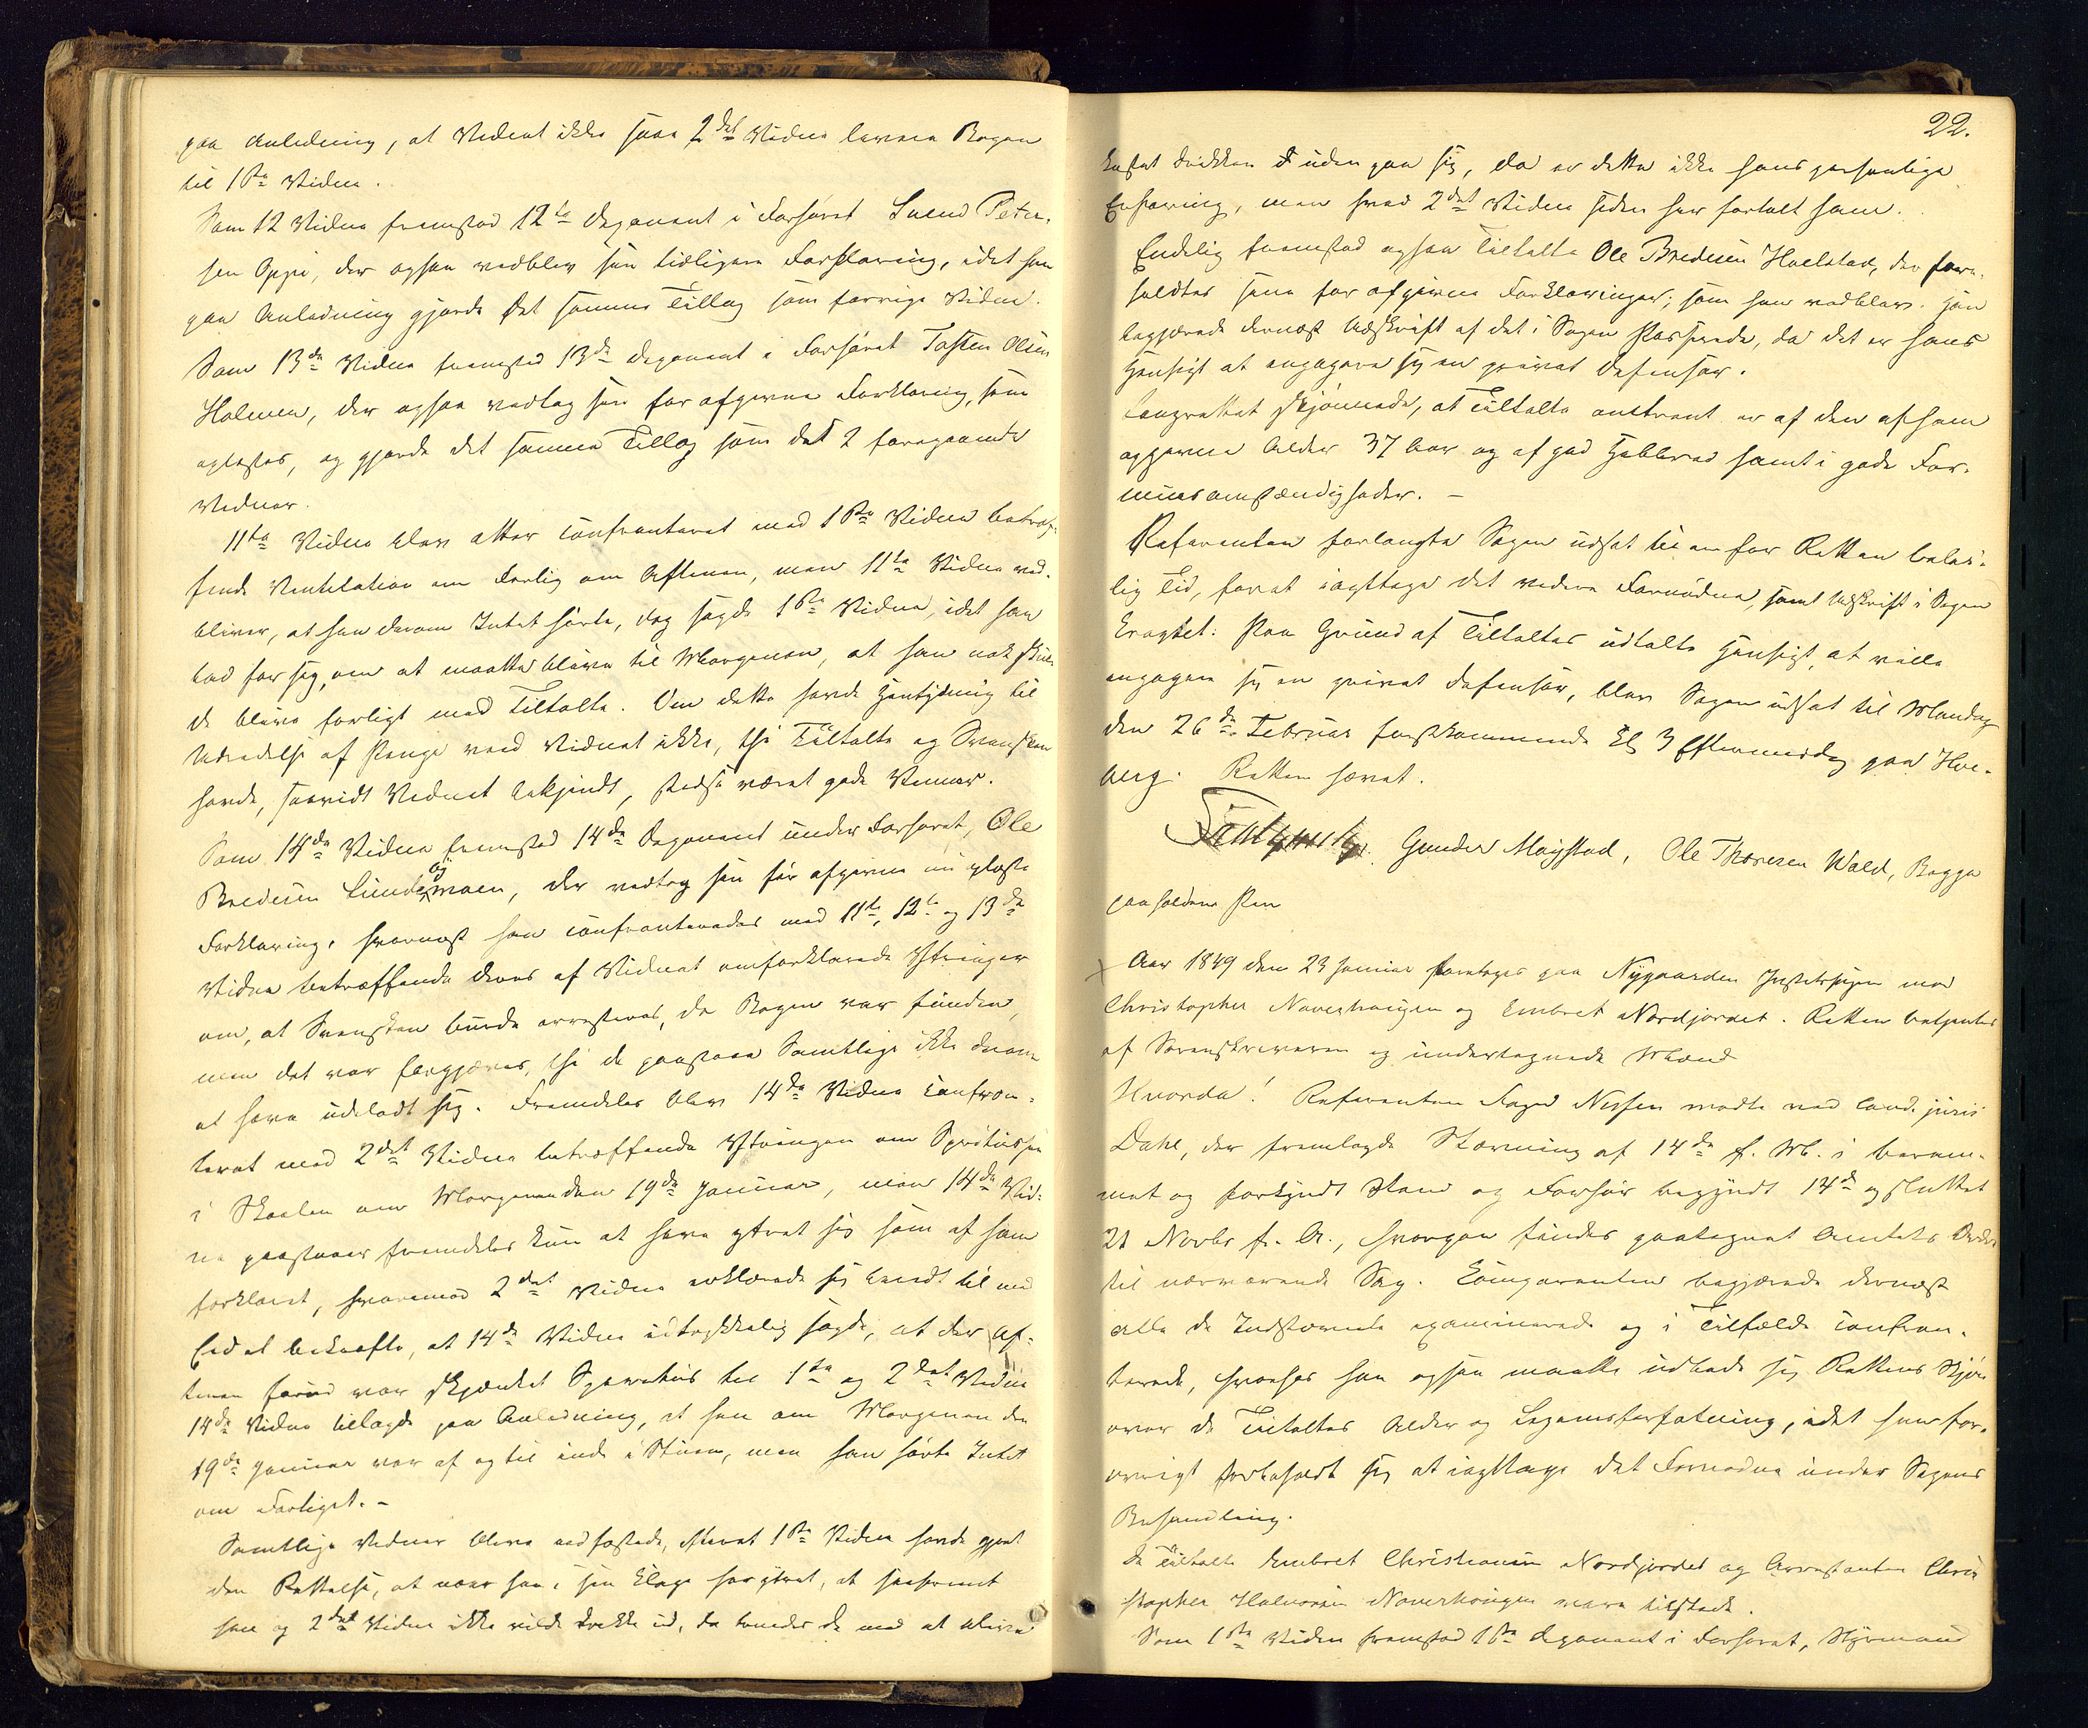 paa Anledning, at Vidnet ikke saae 2det Vidne levere Bogen
til 1ste Vidne.
Som 12 Vidne fremstod 12te Deponent i Forhøret Svend Peter-
sen Oppi, der ogsaa vedblev sin tidligere Forklaring, idet han
paa Anledning gjorde det samme Tillæg som forrige Vidne.
Som 13de Vidne fremstod 13de Deponent i Forhøret Tosten Olsen
Holmen, der ogsaa vedtog sin før afgivne Forklaring, som
oplæstes, og gjorde det samme Tillæg som det 2 foregaaende
Vidner.
11te Vidne blev atter confronteret med 1ste Vidne betræf-
fende Ventilation om Forlig om Aftenen, men 11te Vidne ved-
bliver, at han derom Intet hørte, dog sagde 1ste Vidne, idet han
bad for sig, om at maatte blive til Morgenen, at han nok skul-
de blive forligt med Tiltalte. Om dette havde Hentydning til
Udredelse af Penge veed Vidnet ikke, thi Tiltalte og Svensken
havde, saavidt Vidnet bekjendt, stedse været gode Venner.
Som 14de Vidne fremstod 14de Deponent under Forhøret, Ole
Bredesen Lundemoen, der vedtog sin før afgivne nu oplæste
Forklaring, hvornæst han confronteredes med 11te, 12te og 13de
Vidne betræffende deres af Vidnet omforklarede Yttringer
om, at Svensken burde arresteres, da Bogen var funden,
men det var forgjæves, thi de paastaae Samtlige ikke derom
at have udeladt sig. Fremdeles blev 14de Vidne confron-
teret med 2det Vidne betræffende Yttringen om Spiritussen
i Skaalen om Morgenen den 19de Januar, men 14de Vid-
ne paastaaer fremdeles kun at have yttret sig som af ham
forklaret, hvorimod 2det Vidne erklærede sig beredt til med
Eed at bekræfte, at 14de Vidne udtrykkelig sagde, at der Af-
tenen forud var skjænket Spiritus til 1ste og 2det Vidne
14de Vidne tillagde paa Anledning, at han om Morgenen den
19de Januar var af og til inde i Stuen, men han hørte Intet
om Forliget. -
Samtlige Vidner bleve eedfæstede, efterat 1ste Vidne havde gjort
den Rettelse, at naar han i sin Klage har yttret, at saafremt
han og 2det Vidne ikke vilde drikke ud, da truedes de med at blive
22.
kastet Drikken uden paa sig, da er dette ikke hans personlige
Erfaring, men hvad 2det Vidne siden har fortalt ham.
Endelig fremstod ogsaa Tiltalte Ole Bredesen Hoelstad, der fore-
holdtes sine før afgivne Forklaringer, som han vedblev. Han
begjærede dernæst Udskrift af det i Sagen Passerede, da det er hans
Hensigt at engagere sig en privat Defensor.
Laugrettet skjønnede, at Tiltalte omtrent er af den af ham
opgivne Alder 37 Aar og af god Helbred samt i gode For-
muesomstændigheder. -
Referenten forlangte Sagen udsat til en for Retten belei-
lig Tid, for at iagttage det videre Fornødne, samt Udskrift i Sagen
Eragtet: Paa Grund af Tiltaltes udtalte Hensigt, at ville
engagere sig en privat Defensor, blev Sagen udsat til Mandag
den 26de Februar førstkommende Kl 3 Eftermiddag paa Hoe-
berg. Retten hævet.
Gunder Moystad, Ole Thoresen Wold, Begge
paaholden Pen
Aar 1849 den 23 Januar foretoges paa Nygaarden Justitssagen mod
Christopher Naverhougen og Embret Nordjordet. Retten betjentes
af Sorenskriveren og undertegnede Mænd
Hvorda! Referenten Foged Nissen mødte ved cand. juris
Dahl, der fremlagde Stævning af 14de f. M. i beram-
met og forkyndt Stand og Forhør begyndt 14de og sluttet
21 Novbr f. A., hvorpaa findes paategnet Amtets Ordre
til nærværende Sag. Comparenten begjærede dernæst
alle de Indstævnte examinerede og i Tilfælde confron-
terede, hvorhos han ogsaa maatte udbede sig Rettens Skjøn
over de Tiltaltes Alder og Legemsforfatning, idet han for-
øvrigt forbeholdt sig at iagttage det Fornødne under Sagens
Behandling.
De Tiltalte Embret Christiansen Nordjordet og Arrestanten Chris
stopher Halvorsen Naverhougen vare tilstede.
Som 1ste Vidne fremstod 1ste Deponent i Forhøret, Styrmand